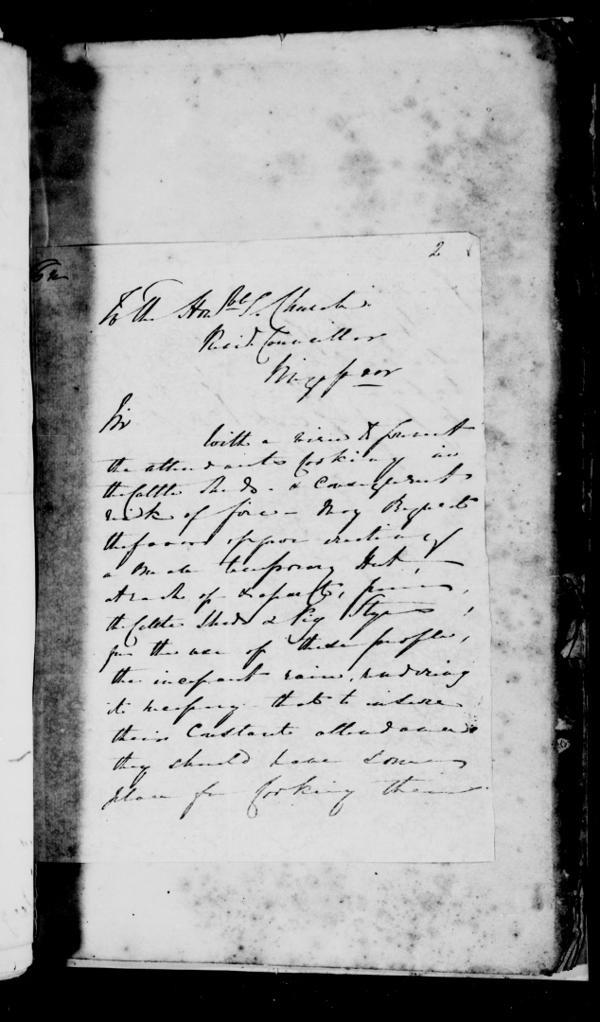 2
To The Hon'ble S. Church
Resid. Councillor
Singapoor
Sir
With a view to prevent
the attendants Cooking in
the Cattle Sheds & Consequent
risk of fire – May Request
the favor of your erection of
a small temporary Hut,
at each of
the Cattle Sheds & Pig Styes,
for the use of these people,
the incessant rains, rendering
it necessary that to insure
their Constant attendance
they should have some
place for Cooking their